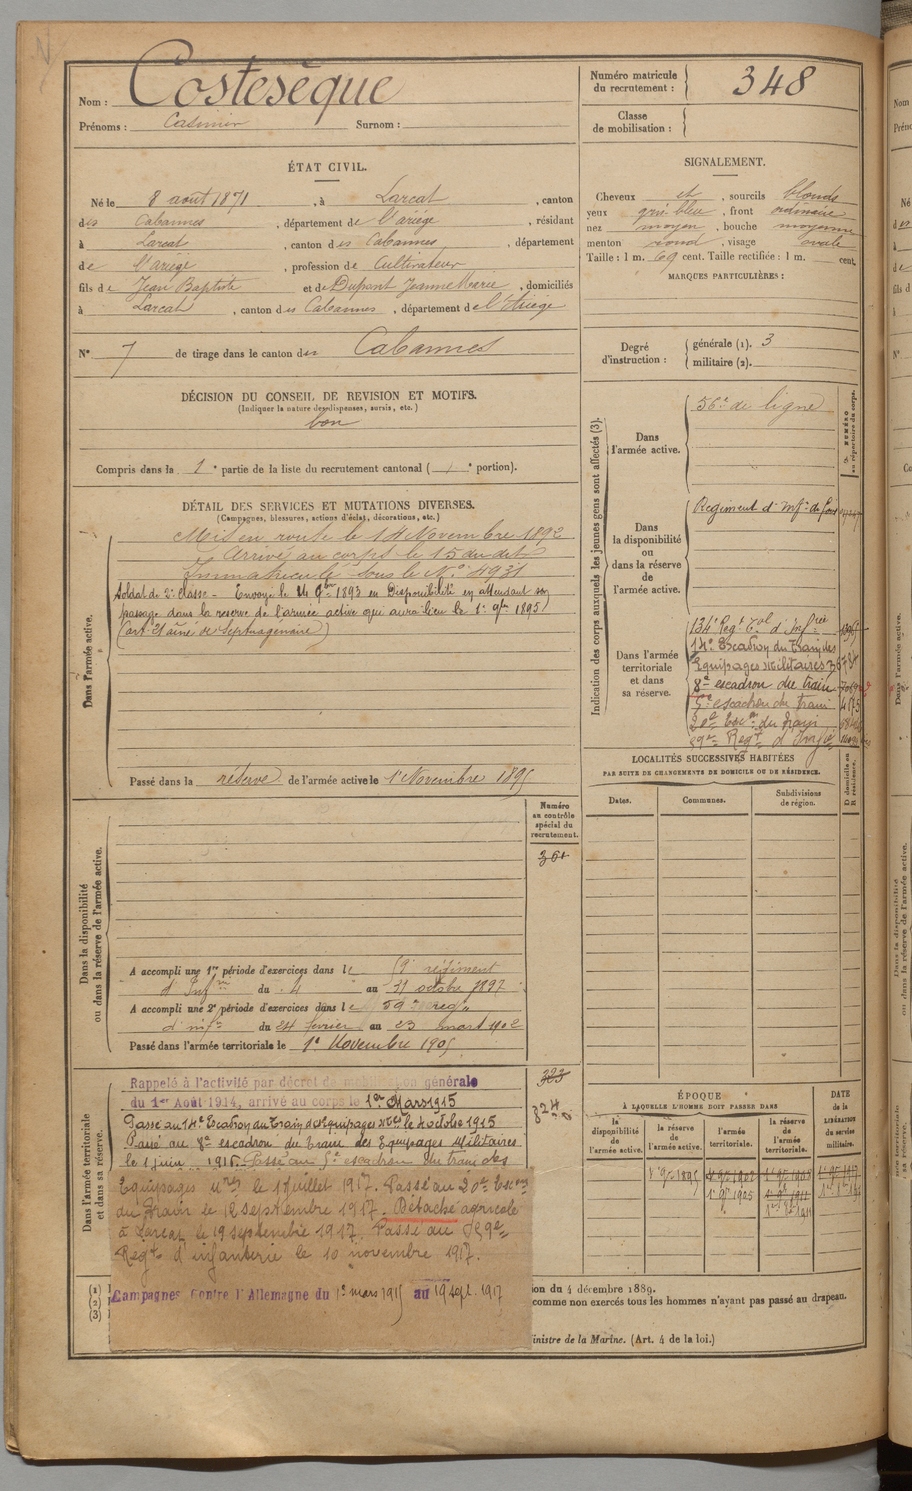 Nom : Costesèque
Prénoms : Casimir Surnom :
ÉTAT CIVIL.
Né le 8 août 1871, à Larcat, canton
des Cabannes, département de l'ariège, résidant
à Larcat, canton des Cabannes, département
de l'ariège, profession de Cultivateur
fils de Jean Baptiste et de Dupont Jeanne Marie, domiciliés
à Larcat, canton des Cabannes, département de l'Ariège
N° 7 de tirage dans le canton des Cabannes
DÉCISION DU CONSEIL DE REVISION ET MOTIFS.
(Indiquer la nature des dispenses, sursis, etc.)
bon
Compris dans la 1e partie de la liste du recrutement cantonal ( e portion).
DÉTAIL DES SERVICES ET MUTATIONS DIVERSES.
(Campagnes, blessures, actions d'éclat, décorations, etc.)
Dans l'armée active.
Mis en route le 14 Novembre 1892
Arrivé au corps le 15 du dit
Immatriculé sous le N° 4931
Soldat de 2e Classe - Envoyé le 24 9bre 1893 en Disponibilité en attendant son
passage dans la réserve de l'armée active qui aura lieu le 1er 9bre 1895
(art. 21 aîné de Septuagénaire)
Passé dans la réserve de l'armée active le 1er Novembre 1895
Dans la disponibilité
ou dans la réserve de l'armée active.
Numéro
au contrôle
spécial du
recrutement.
A accompli une 1re période d'exercices dans le 59e régiment
d'Infrie du 4 au 31 octobre 1897
A accompli une 2e période d'exercices dans le 59e reg
d'infie du 24 fevrier au 23 mars 1902
Passé dans l'armée territoriale le 1er Novembre 1905
Dans l'armée territoriale
et dans sa réserve.
Rappelé à l'activité par décret de mobilisation générale
du 1er Août 1914, arrivé au corps le 1er Mars 1915
Passé au 14e Escadron du Train des Equipages Mres le 4 octobre 1915
Passé au 8e escadron du Train des Equipages Militaires
le 1 juin 1916. Passé au 5e escadron du train des
Equipages Mres le 1 juillet 1917. Passé au 20e Escon
du Train le 12 septembre 1917. Détaché agricole
à Larcat le 19 septembre 1917. Passé au 59e
Regt d'infanterie le 10 novembre 1917.
Campagnes Contre l'Allemagne du 1er mars 1915 au 19 sept. 1917
(1)
(2)
(3)
Numéro matricule
du recrutement : 348
Classe
de mobilisation :
SIGNALEMENT.
Cheveux et, sourcils blonds
yeux gris bleu, front ordinaire
nez moyen, bouche moyenne
menton rond, visage ovale
Taille : 1 m. 69 cent. Taille rectifiée : 1 m. cent.
MARQUES PARTICULIÈRES :
Degré
d'instruction :
générale (1). 3
militaire (2).
Indication des corps auxquels les jeunes gens sont affectés (3).
NUMÉRO
au répertoire du corps.
Dans
l'armée active.
56e de ligne
Dans
la disponibilité
ou
dans la réserve
de
l'armée active.
Regiment d'Infie de Foix
Dans l'armée
territoriale
et dans
sa réserve.
134e Regt Tal d'Infrie
14e Escadron du Train des
Equipages Militaires
8e escadron du train
5e escadron du train
20e Escon du Train
59e Regt d'Infie
LOCALITÉS SUCCESSIVES HABITÉES
PAR SUITE DE CHANGEMENTS DE DOMICILE OU DE RÉSIDENCE.
Dates. Communes. Subdivisions
de région.
D domicile ou
R résidence.
ÉPOQUE
À LAQUELLE L'HOMME DOIT PASSER DANS
la
disponibilité
de
l'armée active.
la réserve
de
l'armée active.
l'armée
territoriale.
la réserve
de
l'armée
territoriale.
DATE
de la
LIBÉRATION
du service
militaire.
1er 9bre 1895
1er 9bre 1905
1er 9bre 1911
ion du 4 décembre 1889.
comme non exercés tous les hommes n'ayant pas passé au drapeau.
inistre de la Marine. (Art. 4 de la loi.)